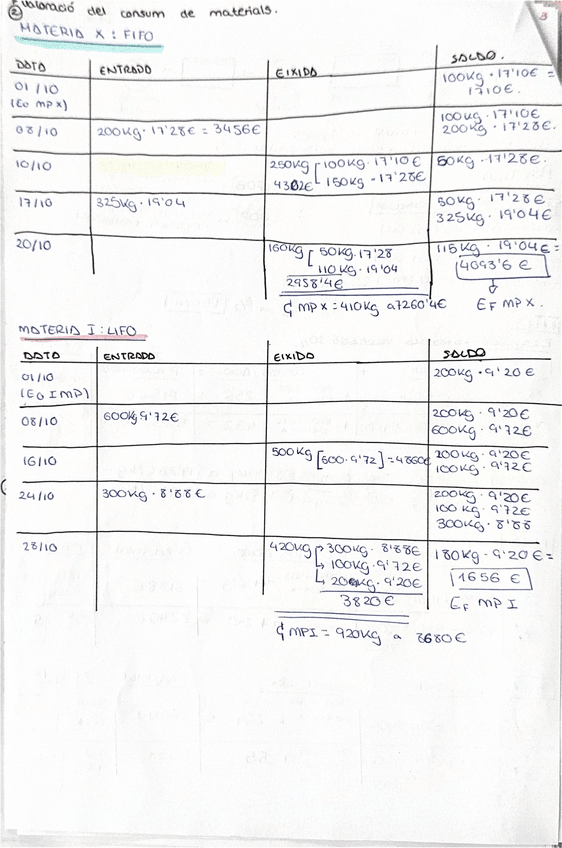 ② Valoració del consum de materials.
3
MATERIA X : FIFO
DATA ENTRADA EIXIDA SALDO.
01/10 100Kg · 17'10€ =
(E0 MP X) 1710€.
100Kg · 17'10€
08/10 200Kg · 17'28€ = 3456€ 200Kg · 17'28€.
10/10 250Kg [ 100Kg · 17'10€ 50Kg · 17'28€.
4302€ 150Kg · 17'28€
17/10 325Kg · 19'04 50Kg · 17'28€
325Kg · 19'04€
20/10 160Kg [ 50Kg · 17'28 115Kg · 19'04€ =
110Kg · 19'04 4093'6 €
2958'4€
₵ MPX = 410Kg a 7260'4€ EF MPX.
MATERIA I : LIFO
DATA ENTRADA EIXIDA SALDO
01/10 200Kg · 9'20€
(E0 I MP)
08/10 600Kg 9'72€ 200Kg · 9'20€
600Kg · 9'72€
16/10 500Kg [500 · 9'72] = 4860€ 200Kg · 9'20€
100Kg · 9'72€
24/10 300Kg · 8'88€ 200Kg · 9'20€
100 Kg · 9'72€
300Kg · 8'88
28/10 420Kg 300Kg · 8'88€ 180Kg · 9'20€ =
100Kg · 9'72€ 1656 €
20Kg · 9'20€
3820€ EF MP I
₵ MPI = 920Kg a 8680€